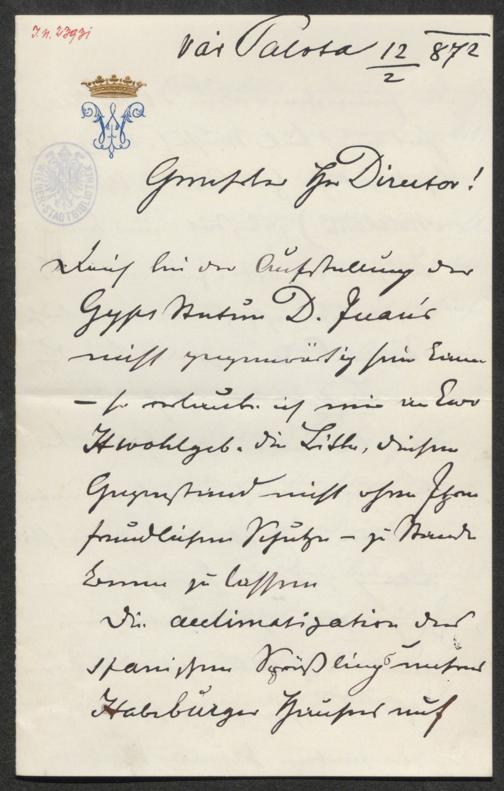 I. N. 23931
Vár Palota 12/2 872
WIENER STADTBIBLIOTHEK
Geehrter Hr Director!
ich bei der Aufstellung der
Gyps Statue D. Juan's
nicht gegenwärtig sein kann
– so erlaube ich mir an Euer
Hwohlgeb. die Bitte, diesen
Gegenstand nicht ohne Ihren
freundlichen Schutze – zu Stande
komen zu lassen
Die acclimatization des
spanischen Sprößlings unseres
Habsburger Hauses auf